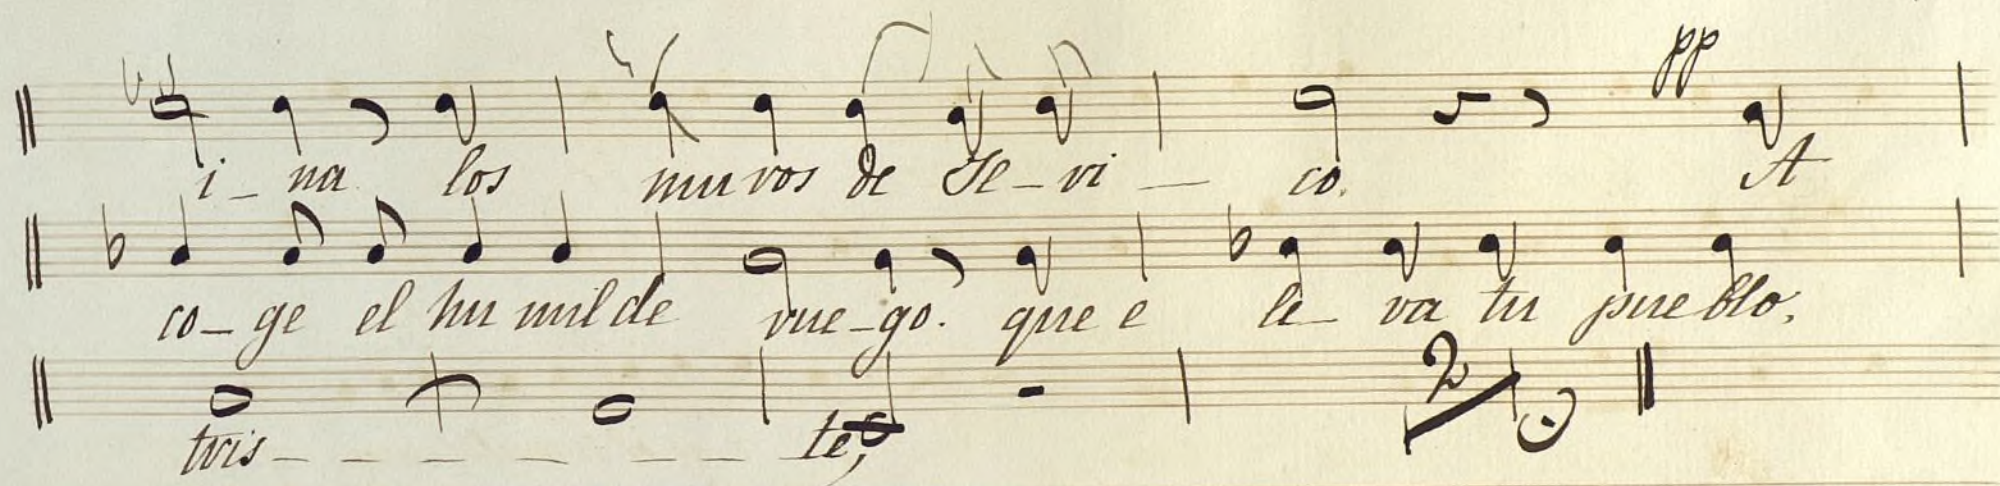 pp
i_na los muros de Je_ri_co. A
co_ge el humilde rue_go. que e le_va tu pueblo,
tris_ _ _ _ _ _ _ te,
2